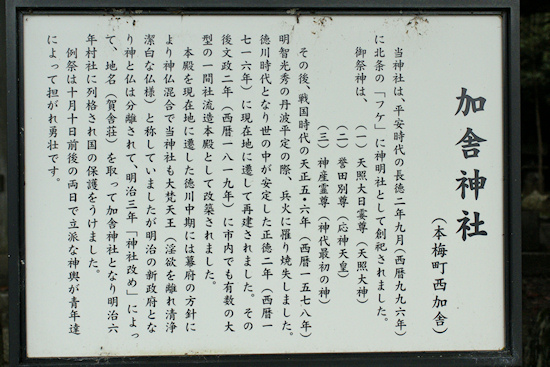 加舎神社
（本梅町西加舎）
当神社は、平安時代の長徳二年九月（西暦九九六年）
に北条の「フケ」に神明社として創祀されました。
御祭神は、
（一）天照大日霊尊（天照大神）
（二）誉田別尊（応神天皇）
（三）神産霊尊（神代最初の神）
その後、戦国時代の天正五・六年（西暦一五七八年）
明智光秀の丹波平定の際、兵火に罹り焼失しました。
徳川時代となり世の中が安定した正徳二年（西暦一
七一六年）に現在地に遷して再建されました。その
後文政二年（西暦一八一九年）に市内でも有数の大
型の一間社流造本殿として改築されました。
本殿を現在地に遷した徳川中期には幕府の方針に
より神仏混合で当神社も大梵天王（淫欲を離れ清浄
潔白な仏様）と称していましたが明治の新政府とな
り神と仏は分離されて、明治三年「神社改め」によっ
て、地名（賀舎荘）を取って加舎神社となり明治六
年村社に列格され国の保護をうけました。
例祭は十月十日前後の両日で立派な神輿が青年達
によって担がれ勇壮です。